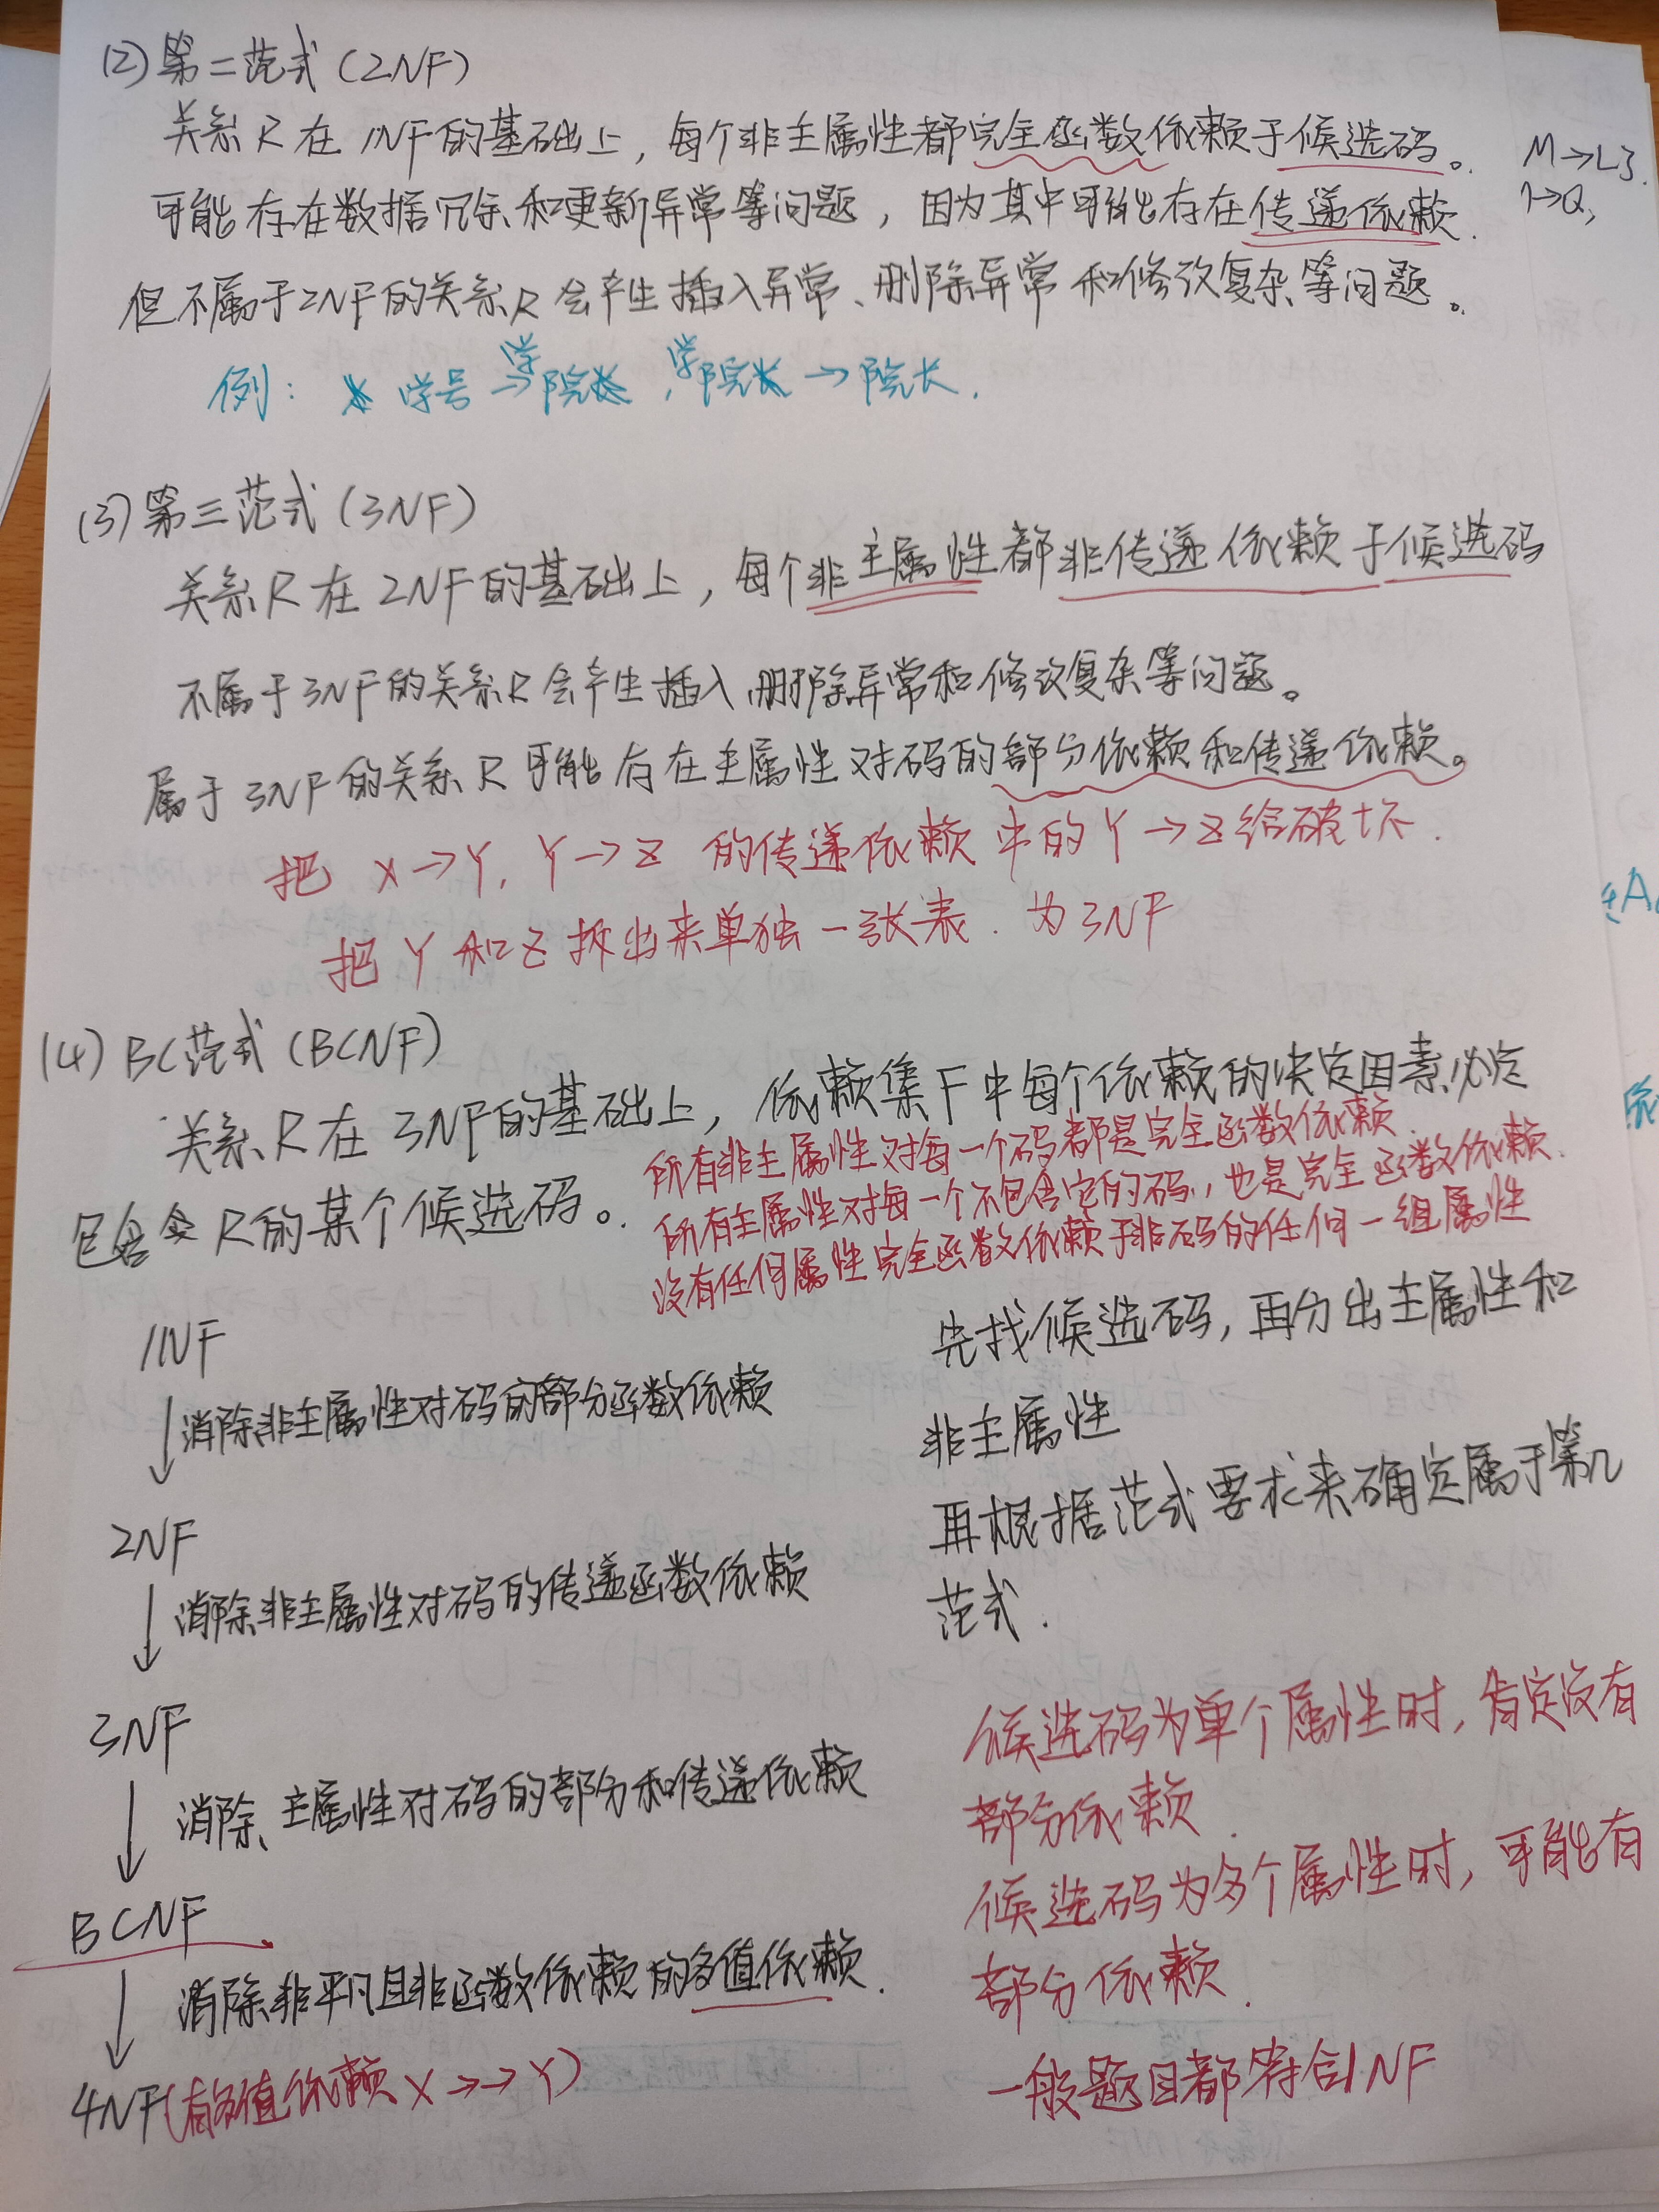 (2) 第二范式 (2NF)
关系R在1NF的基础上，每个非主属性都完全函数依赖于候选码。
可能存在数据冗余和更新异常等问题，因为其中可能存在传递依赖.
但不属于2NF的关系R会产生插入异常、删除异常和修改复杂等问题。
例: 学号→学院, 学院→院长.
(3) 第三范式 (3NF)
关系R在2NF的基础上，每个非主属性都非传递依赖于候选码
不属于3NF的关系R会产生插入、删除异常和修改复杂等问题。
属于3NF的关系R可能存在主属性对码的部分依赖和传递依赖。
把 X→Y, Y→Z 的传递依赖中的Y→Z给破坏.
把Y和Z拆出来单独一张表. 为3NF
(4) BC范式 (BCNF)
关系R在3NF的基础上，依赖集F中每个依赖的决定因素必定
包含R的某个候选码。
所有非主属性对每一个码都是完全函数依赖.
所有主属性对每一个不包含它的码，也是完全函数依赖.
没有任何属性完全函数依赖于非码的任何一组属性
1NF
↓消除非主属性对码的部分函数依赖
2NF
↓消除非主属性对码的传递函数依赖
3NF
↓消除主属性对码的部分和传递依赖
BCNF
↓消除非平凡且非函数依赖的多值依赖.
4NF(有多值依赖 X→→Y)
先找候选码，再分出主属性和
非主属性
再根据范式要求来确定属于第几
范式.
候选码为单个属性时，肯定没有
部分依赖.
候选码为多个属性时，可能有
部分依赖.
一般题目都符合1NF